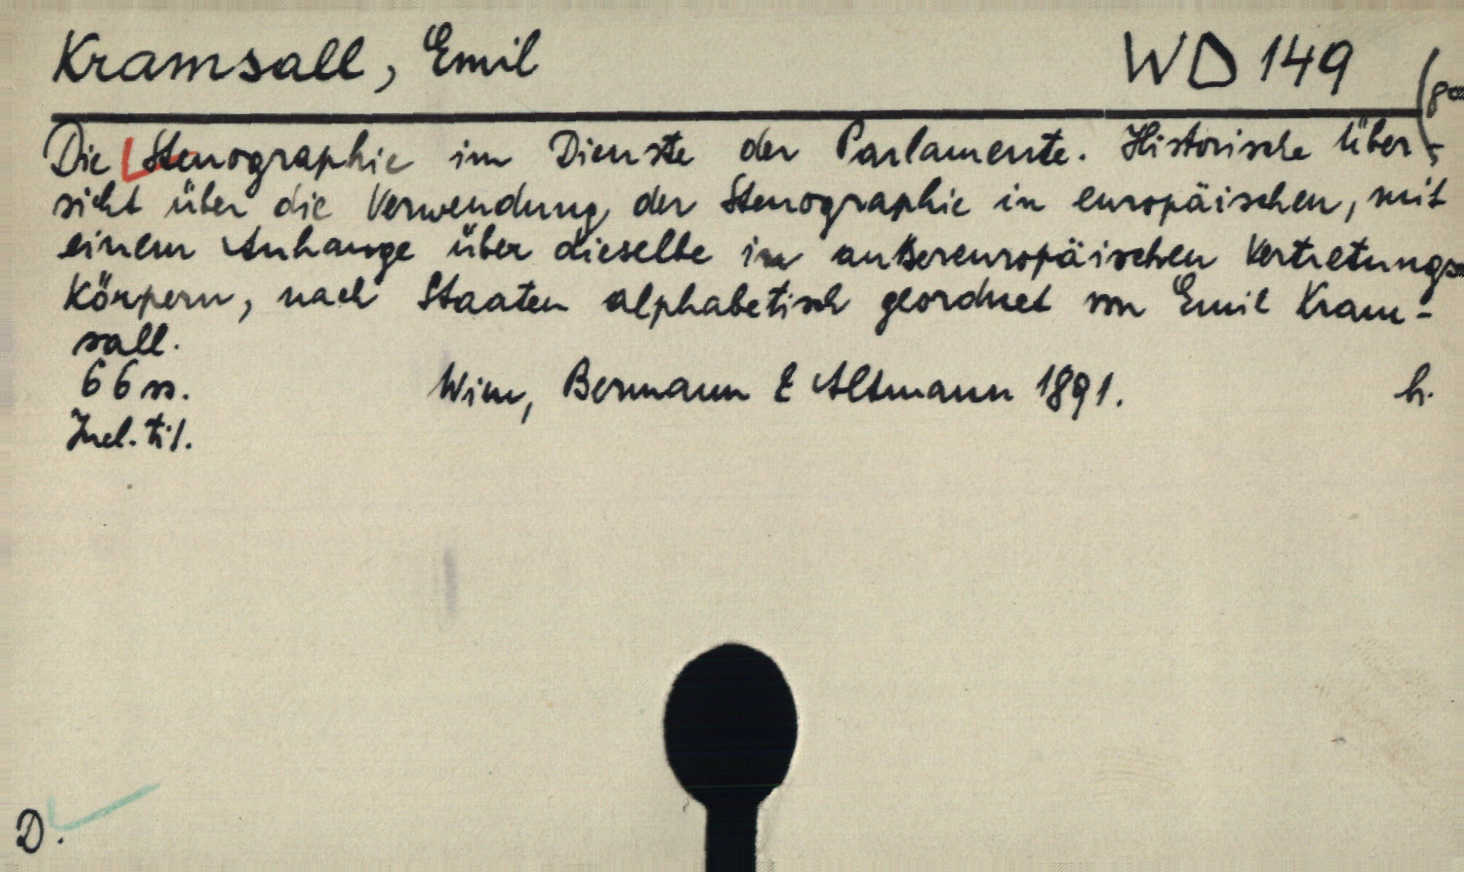 Kramsall, Emil WD 149
Die Stenographie im Dienste der Parlamente. Historische Über-
sicht über die Verwendung der Stenographie in europäischen, mit
einem Anhange über dieselbe in außereuropäischen Vertretungs-
körpern, nach Staaten alphabetisch geordnet von Emil Kram-
sall.
66 ss. Wien, Bermann & Altmann 1891. h.
Incl. tit.
D.